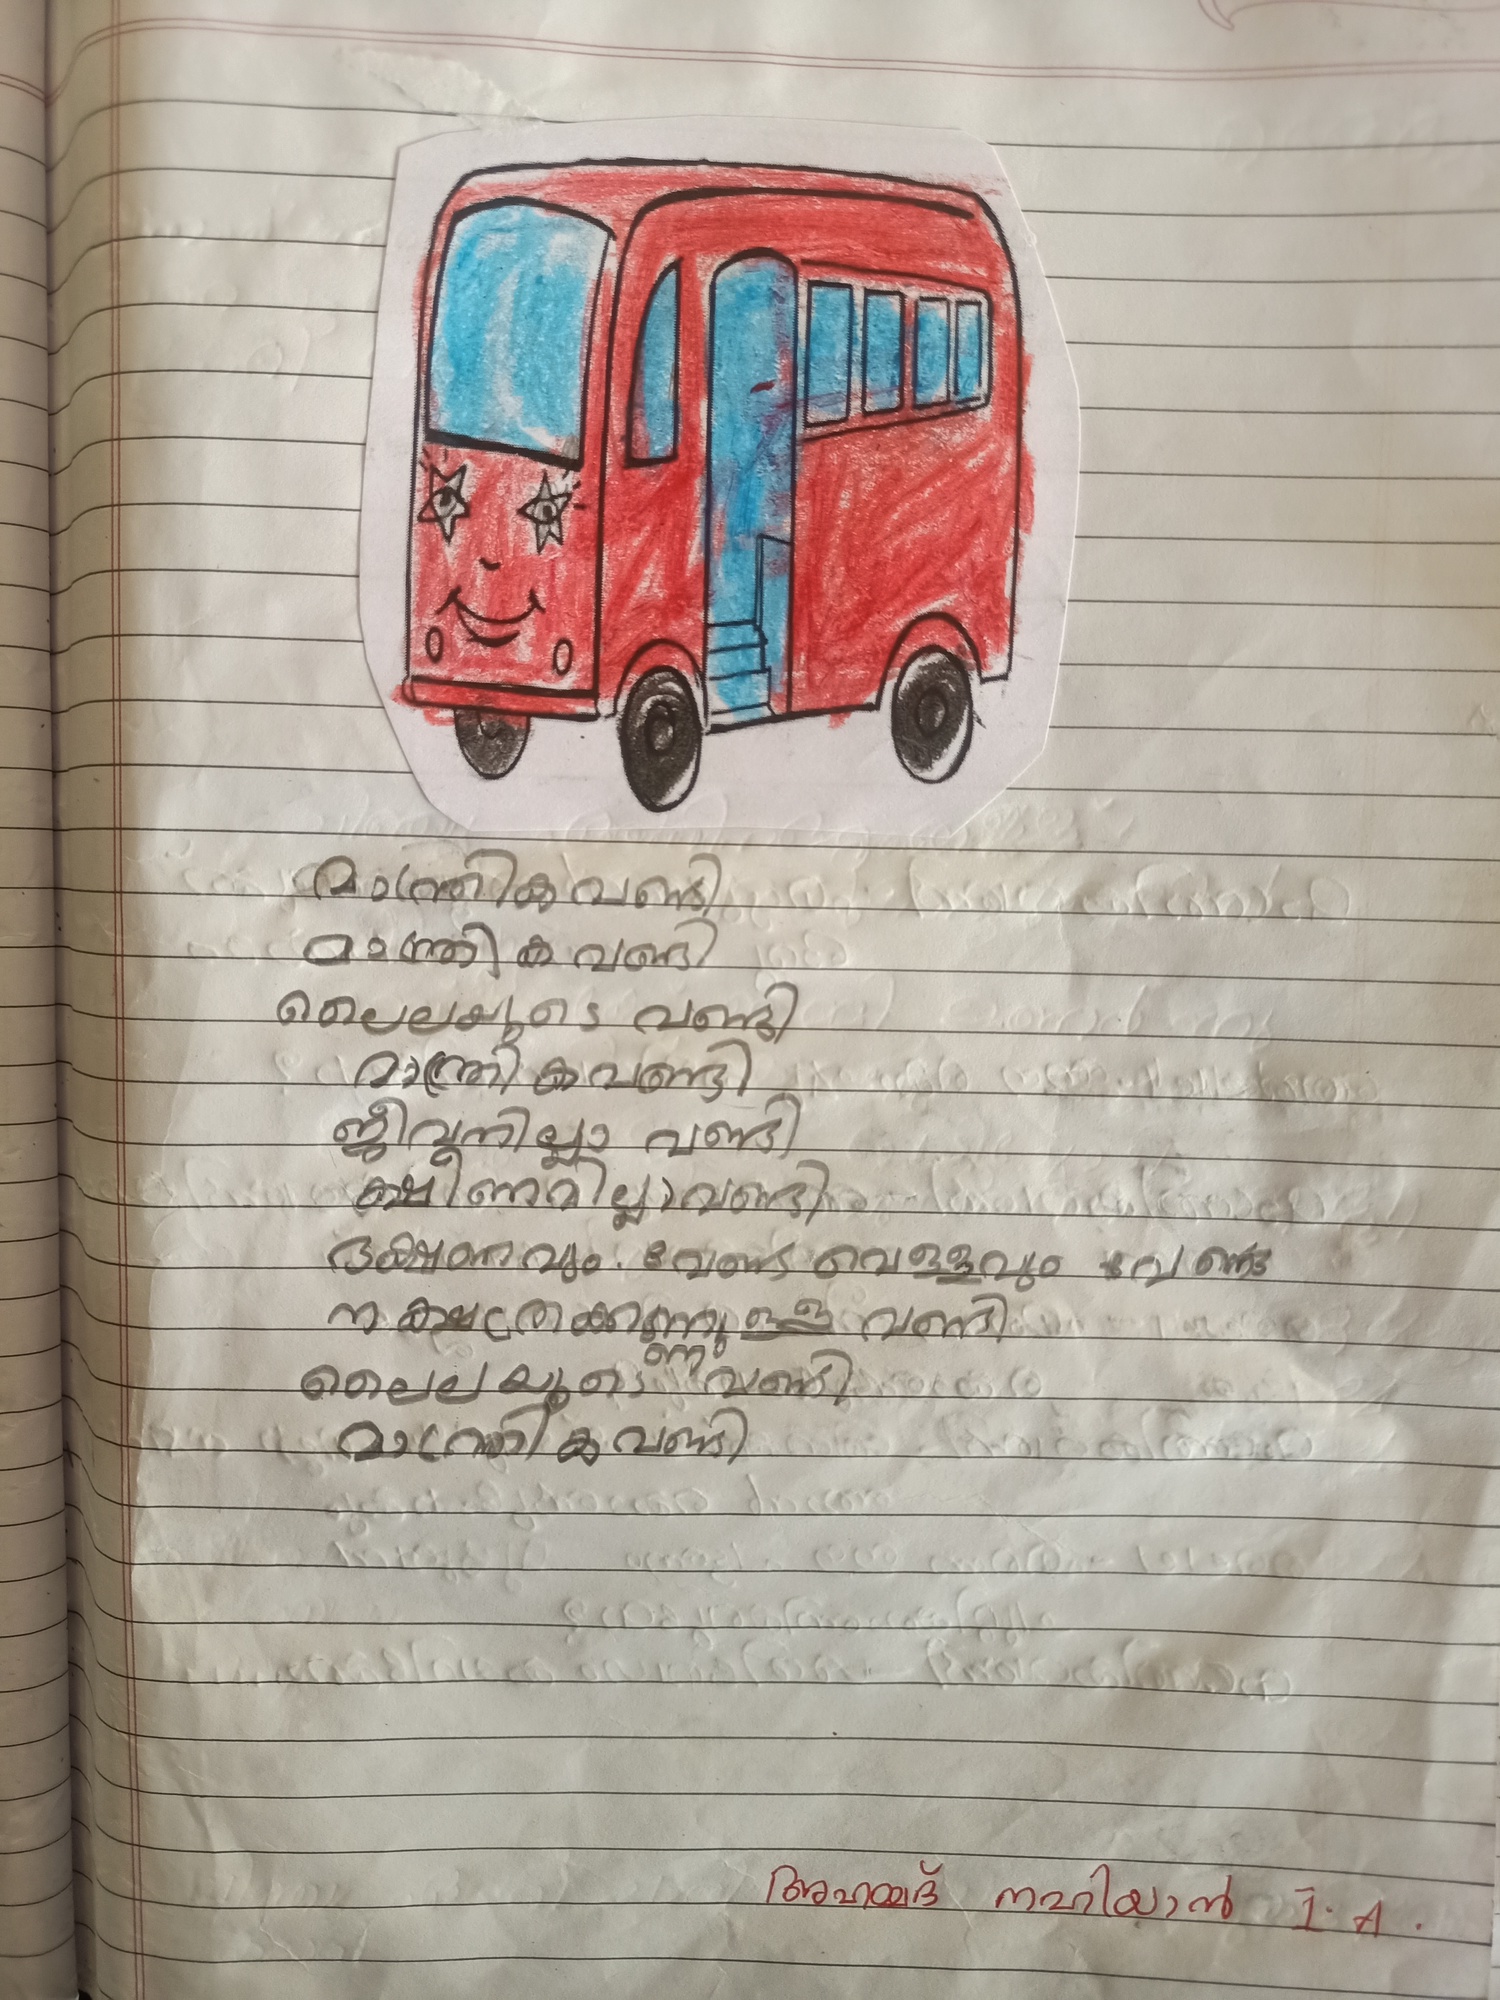 മാന്ത്രികവണ്ടി
മാന്ത്രികവണ്ടി
ലൈലയുടെ വണ്ടി
മാന്ത്രികവണ്ടി
ജീവനില്ലാ വണ്ടി
ക്ഷീണമില്ലാവണ്ടി
ഭക്ഷണവും വേണ്ട വെള്ളവും വേണ്ട
നക്ഷത്രക്കണ്ണുള്ള വണ്ടി
ലൈലയുടെ വണ്ടി
മാന്ത്രികവണ്ടി
അഹമ്മദ് നഹിയാൻ I. A.